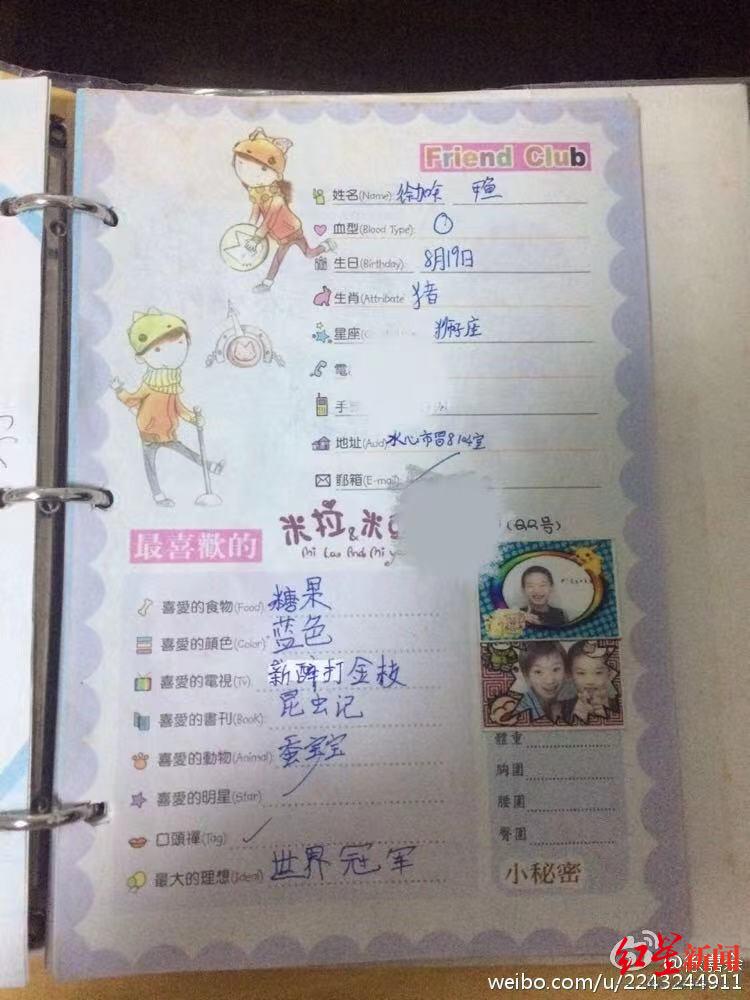 Friend Club
姓名(Name) 徐加余 甲鱼
血型(Blood Type): O
生日(Birthday) 8月19日
生肖(Attribute 猪
星座( 狮子座
電
手
地址(Add) 水心市
郵箱(E-mail)
最喜歡的
米拉&米
Mi Laa And Mi
(QQ号)
喜愛的食物(Food) 糖果
喜愛的顏色(Color) 蓝色
喜愛的電視(Tv) 新醉打金枝
喜愛的書刊(BooK) 昆虫记
喜愛的動物(Animal) 蚕宝宝
喜愛的明星(Star)
口頭禪(Tag)
最大的理想(Ideal) 世界冠军
體重
胸圍
腰圍
臀圍
小秘密
红星新闻
weibo.com/u/2243244911